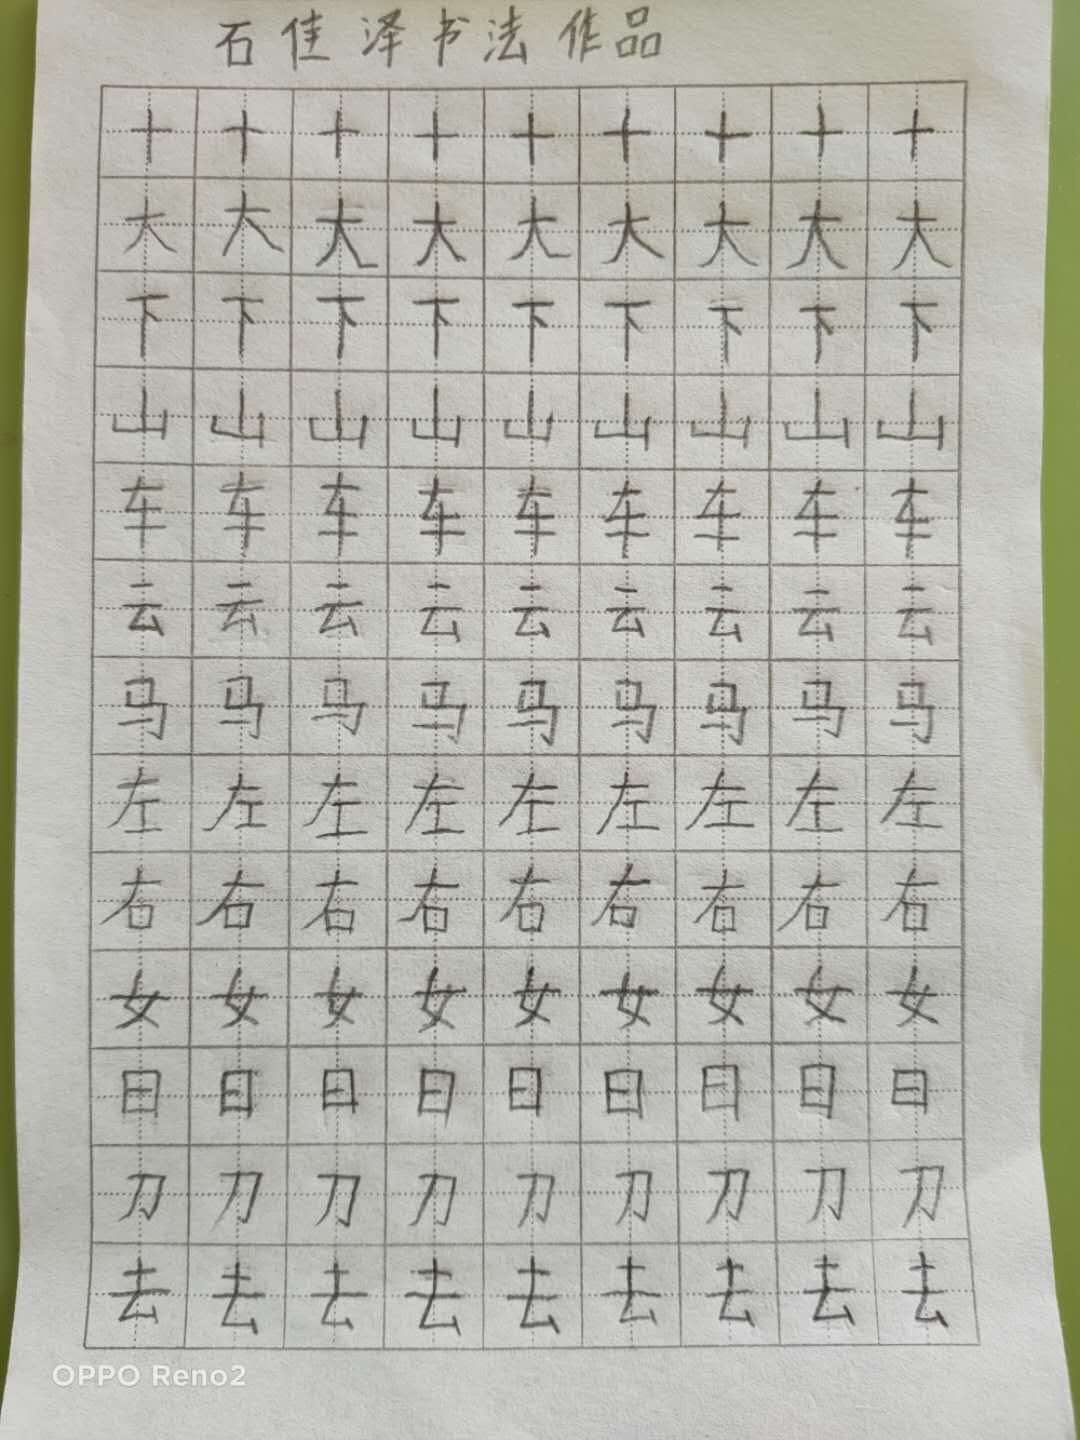 石佳泽书法作品
十十十十十十十十十
大大大大大大大大大
下下下下下下下下下
山山山山山山山山山
车车车车车车车车车
云云云云云云云云云
马马马马马马马马马
左左左左左左左左左
右右右右右右右右右
女女女女女女女女女
日日日日日日日日日
刀刀刀刀刀刀刀刀刀
去去去去去去去去去
OPPO Reno2